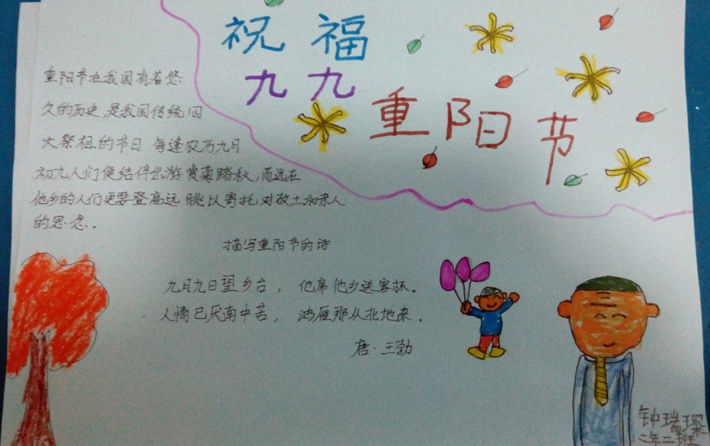 祝福
九九
重阳节
重阳节在我国有着悠
久的历史,是我国传统四
大祭祖的节日 每逢农历九月
初九人们便结伴出游赏菊踏秋,而远在
他乡的人们更要登高远眺以寄托对故土和亲人
的思念。
描写重阳节的诗
九月九日望乡台, 他席他乡送客杯。
人情已厌南中苦, 鸿雁那从北地来。
唐·王勃
钟瑞琛
二年二班